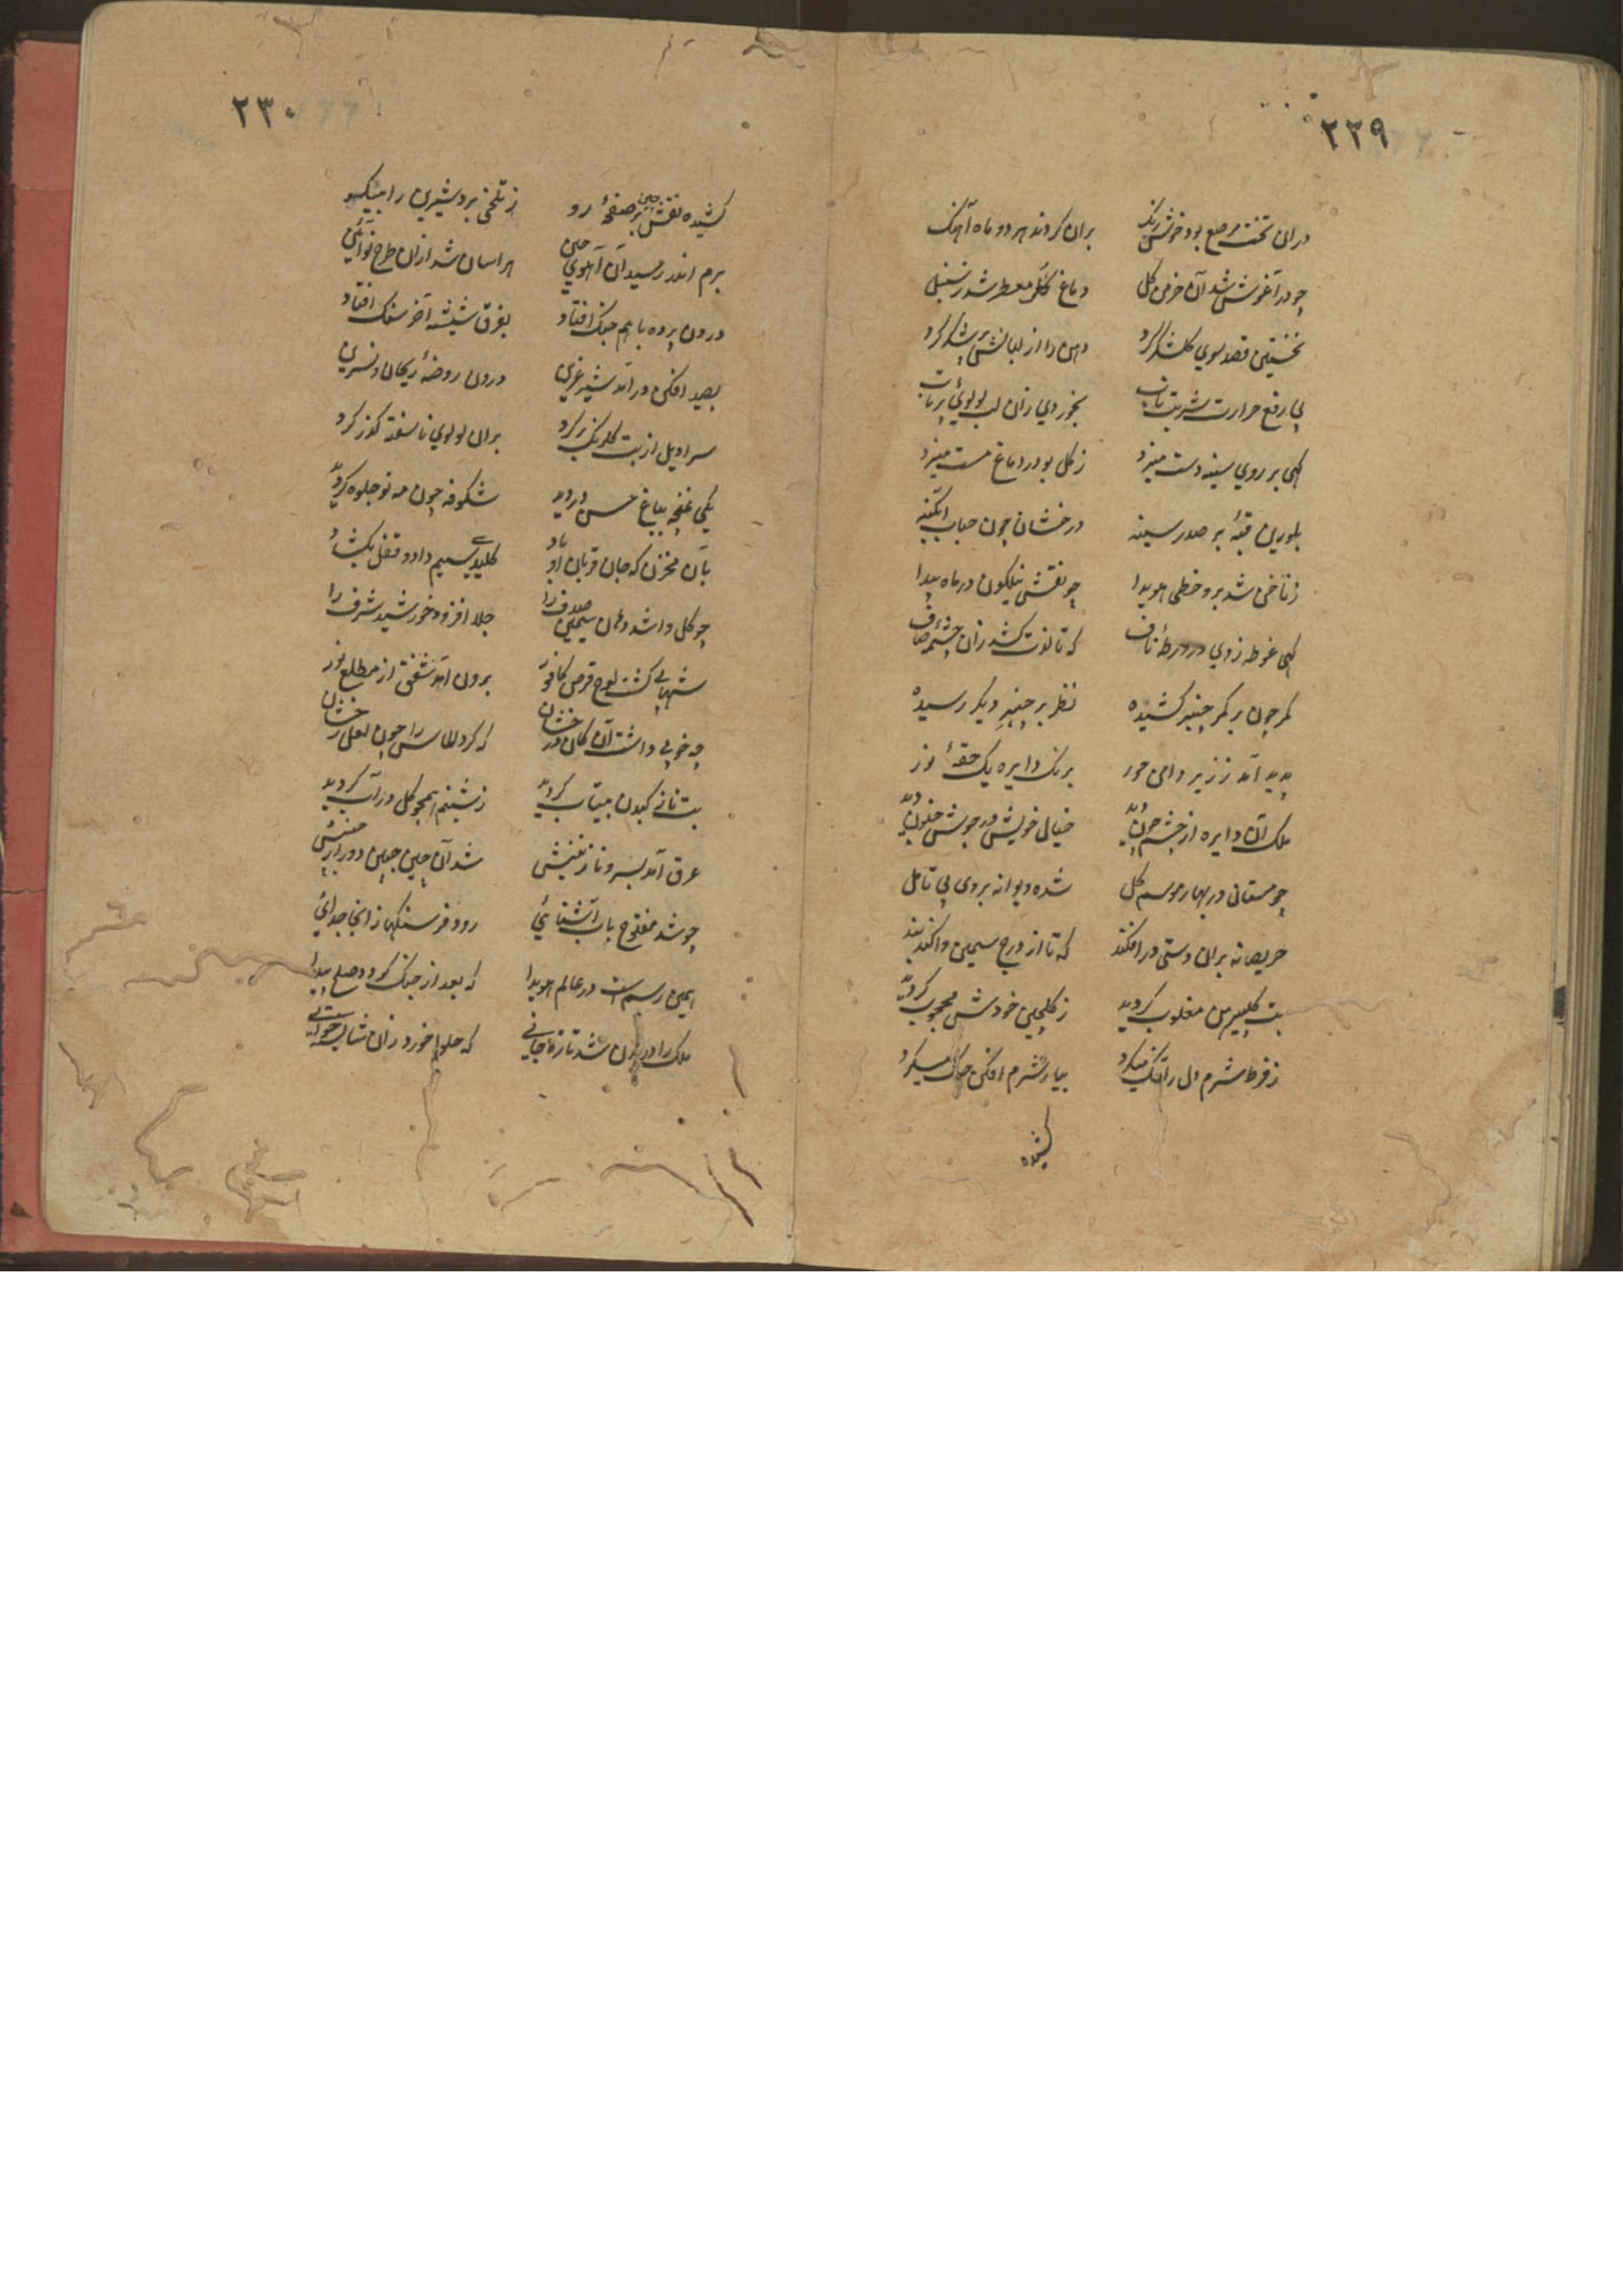 ۲۳۹
دران تخت مرصع بود خوش رنگ بران کردند هر دو ماه آهنک
چو در آغوش شد آن خرمن کل دماغ معطر شد ز سنبل
نخستین قصد بوی کلشکر کرد دهن را از لبانش پر شکر کرد
پی رفع حرارت شربت ناب بخوردی زان لب لولوئی پرتاب
کهی بر روی سینه دست میزد ز کل بو در دماغ مست میزد
بلورین قبهٔ بر صدر سینه درخشان چون حباب آبکینه
ز ناخن شد برو خطی هویدا چو نقش نیلکون در ماه پیدا
کهی غوطه زدی در ورطهٔ ناف که تا لذت کشد زان چشمهٔ صاف
کمر چون بر کمر چنبر کشیده نظر بر چنبر دیکر رسیده
پدید آمد ز زیر دامن حور برنک دایره یک حقهٔ نور
ملک آن دایره از چشم چون دید خیالی خویش در جوش دید
چو مستانی در بهار موسم کل شده دیوانه بروی بی تامل
حریصانه بران دستی در افکند که تا از درج سیمین واکند بند
بت مغلوب کردید ز کلچین خودش محجوب کردید
ز فرط شرم دل را تنک میکرد بیار شرم افکن جنک میکرد
کشیده
۲۳۰
کشیده نقش چین بر صفحهٔ رو ز تلخی برد شیرین را بیکسو
برم اندر رسید آن آهوی چین هراسان شد ازان طرح نوآئین
درون پرده باهم جنک افتاد بفرق شیشه آخر سنک افتاد
بصید افکن در آمد شیر غرین درون روضهٔ ریحان و نسرین
سراویل از بت کلرنک بر کرد بران لولوی ناسفته کذر کرد
یکی غنچه بباغ حسن دردید شکوفه چون مه نو جلوه کردید
بآن مخزن که جان قربان او باد کلید سیم داد و قفل بکشاد
چو کل وا شد دهان سیمین صدف را جلا افزود خورشید شرف را
شهابی کشت لوح قرص کافور برون آمد شفق از مطلع نور
چه خوبی داشت آن کان درخشان که کرد الماس را چون لعل رخشان
بت نازک بدن بیتاب کردید ز شبنم همچو کل در آب کردید
عرق آمد بسرو نازنینش شد آن چین جبین دور از
چو شد مفتوح باب آشنائی رود فرسنکها زانجا جدائی
همین رسم است در عالم هویدا که بعد از جنک کردد صلح پیدا
ملک را در بدن شد تازه جانی که حلوا خورد زان